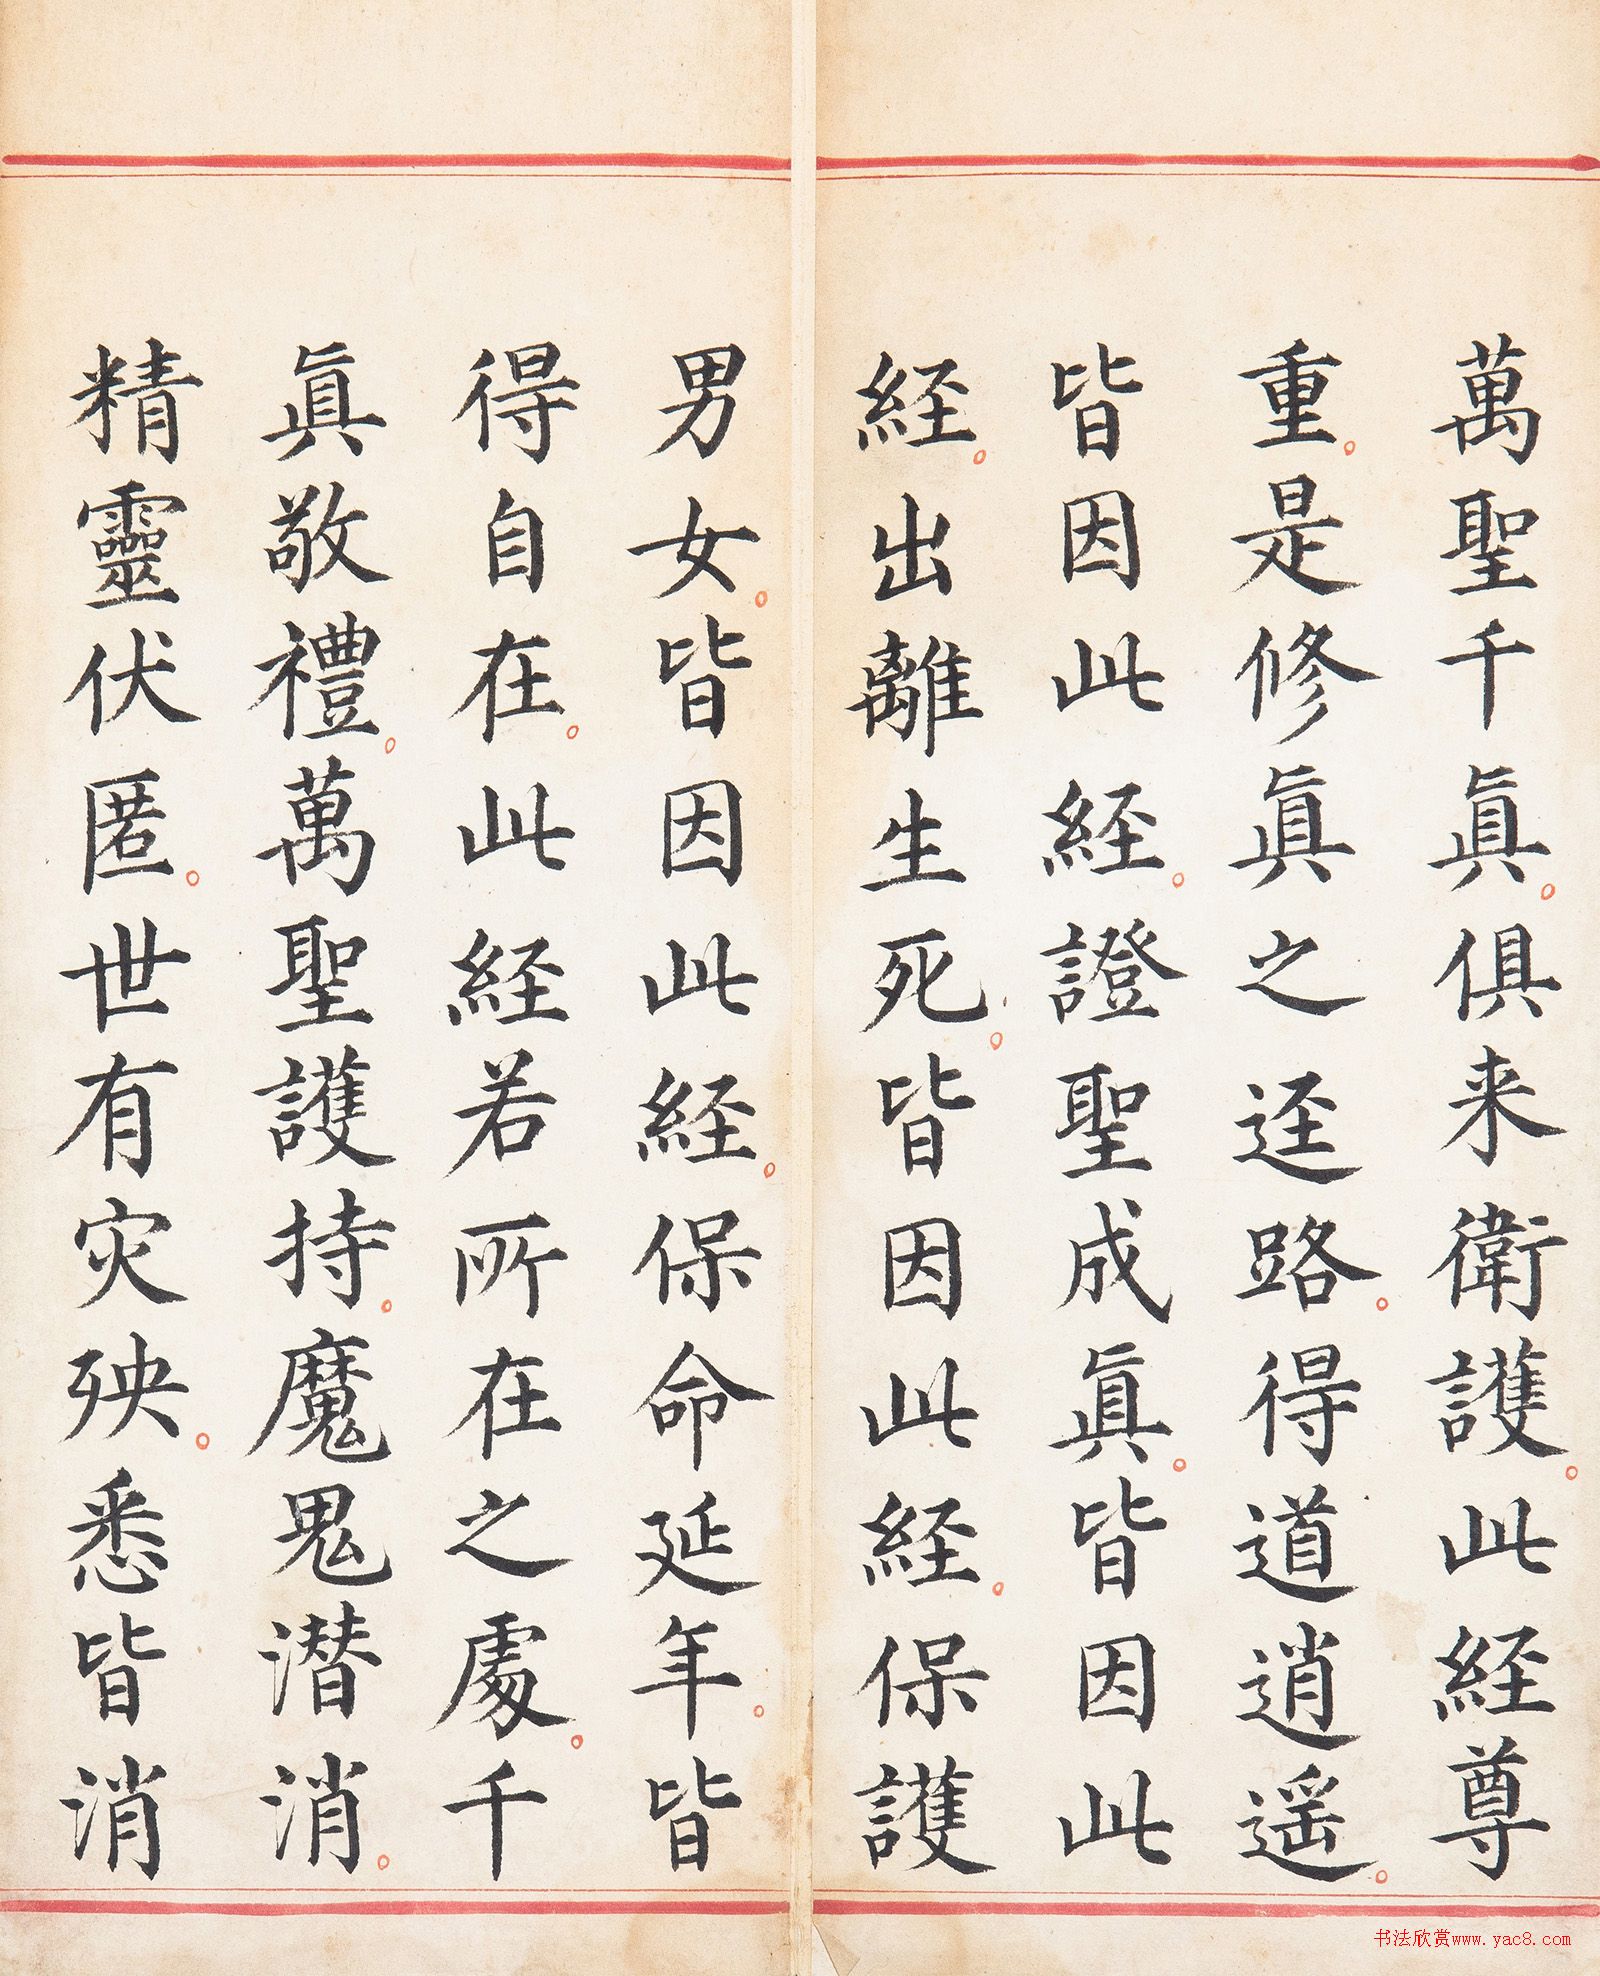 萬聖千眞。俱来衛護。此経尊
重。是修眞之迳路。得道逍遥。
皆因此経。證聖成眞。皆因此
経。出離生死。皆因此経。保護
男女。皆因此経。保命延年。皆
得自在。此経若所在之處。千
眞敬禮。萬聖護持。魔鬼潜消。
精靈伏匿。世有灾殃。悉皆消
书法欣赏www.yac8.com